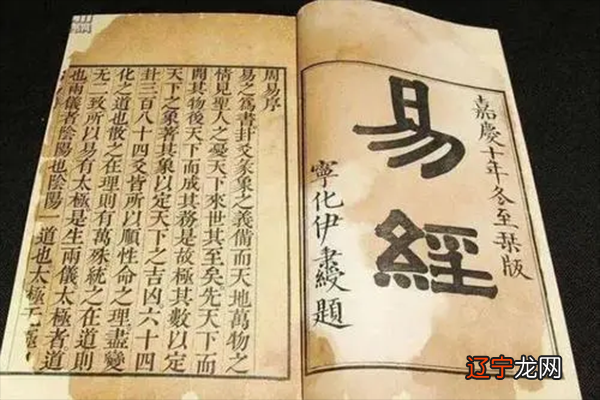 嘉慶十年冬至栞版
易經
寧化伊秉綬題
周易序
易之爲書卦爻彖象之義備而天地萬物之
情見聖人之憂天下來世其至矣先天下而
開其物後天下而成其務是故極其數以定
天下之象著其象以定天下之吉凶六十四
卦三百八十四爻皆所以順性命之理盡變
化之道也散之在理則有萬殊統之在道則
無二致所以易有太極是生兩儀太極者道
也兩儀者陰陽也陰陽一道也太極
辽宁龙网